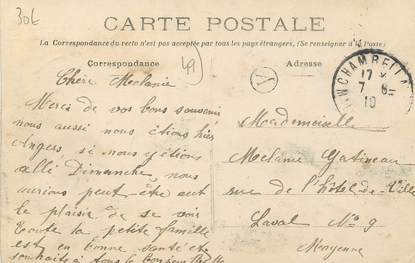 30€
CARTE POSTALE
La Correspondance du recto n'est pas acceptée par tous les pays étrangers, (Se renseigner à la Poste)
Correspondance
49
A
Adresse
CHAMBELLAY
17
7
10
Chère Melanie
Merci de vos bons souvenir
nous aussi nous étions hier
Angers si nous y étions
allé Dimanche, nous
aurions peut-être eut
le plaisir de se voir
toute la petite famille
est en bonne santé et
souhaits à tous le bonjour
Mademoiselle
Melanie Gatineau
rue de l'hôtel-de-Ville
Laval No 9
Mayenne